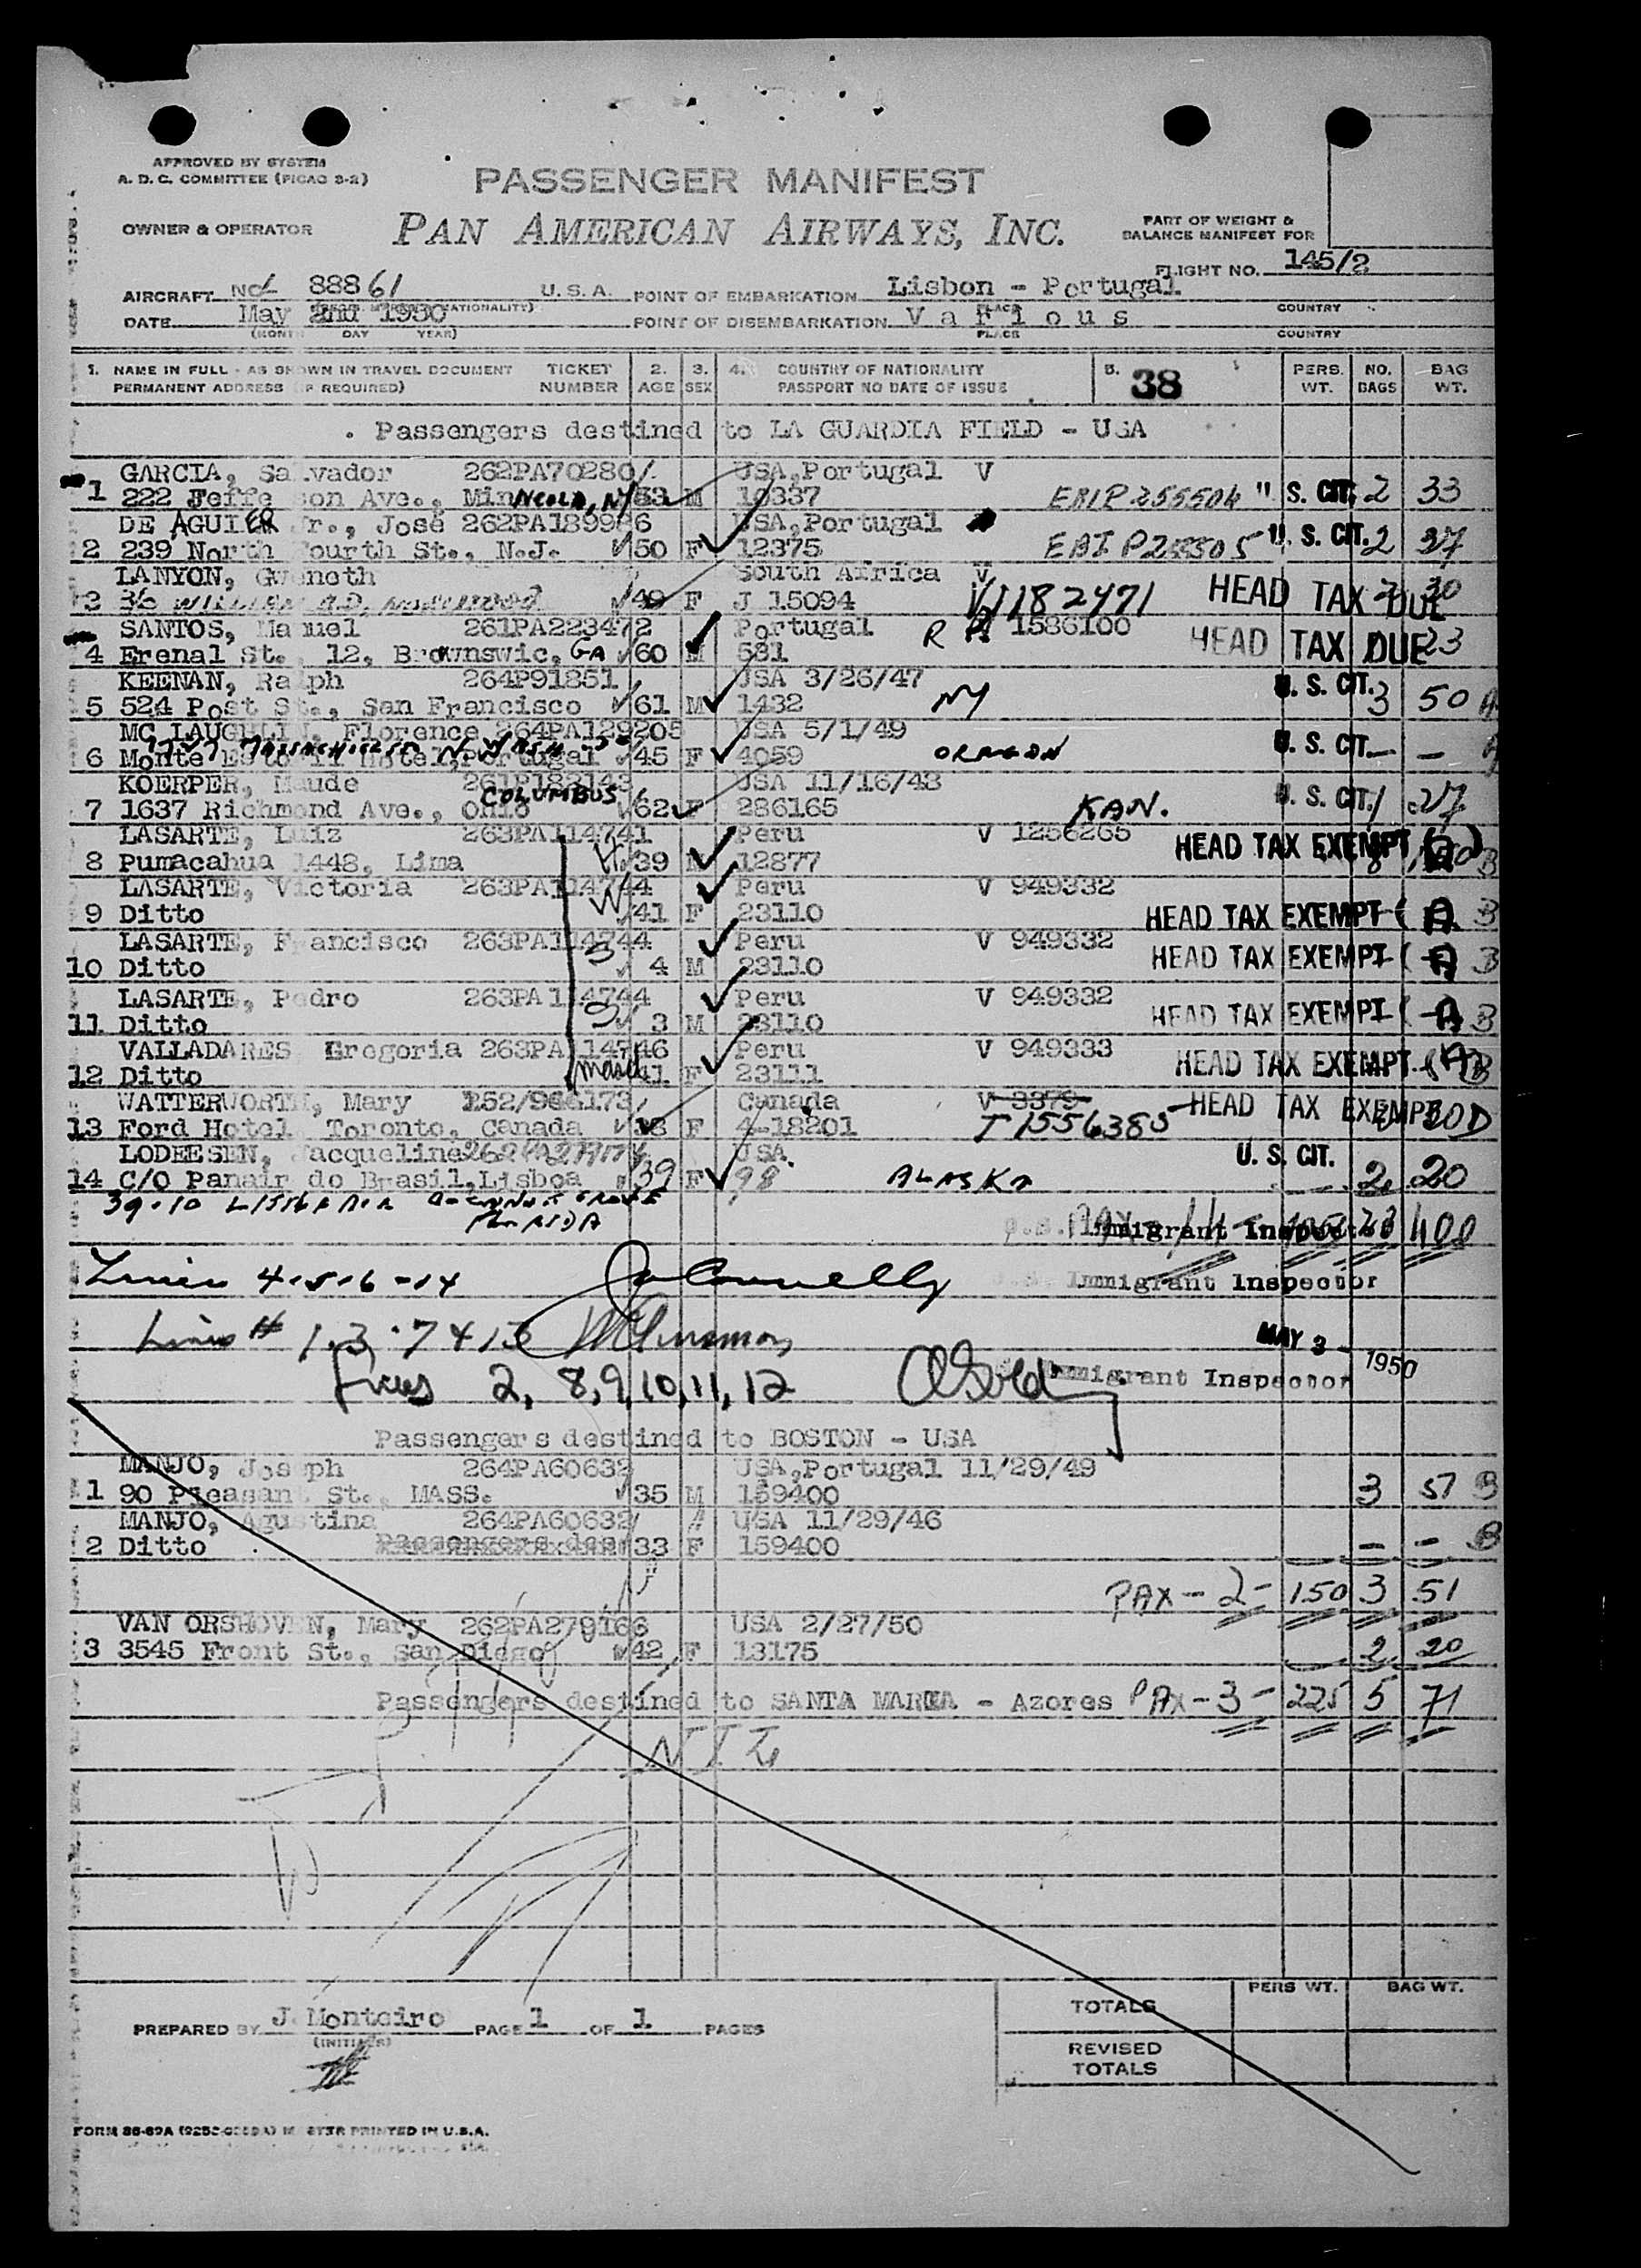 APPROVED BY SYSTEM
A. D. C. COMMITTEE (PICAO 3-2)
PASSENGER MANIFEST
OWNER & OPERATOR
PAN AMERICAN AIRWAYS, INC.
PART OF WEIGHT &
BALANCE MANIFEST FOR
FLIGHT NO. 145/2
AIRCRAFT NC 88861 U. S. A. POINT OF EMBARKATION Lisbon - Portugal
PLACE COUNTRY
DATE May 2nd 1950 POINT OF DISEMBARKATION Various
DAY YEAR) PLACE COUNTRY
1. NAME IN FULL - AS SHOWN IN TRAVEL DOCUMENT TICKET 2. 3. 4. COUNTRY OF NATIONALITY 5. 38 PERS. NO. BAG
PERMANENT ADDRESS (IF REQUIRED) NUMBER AGE SEX PASSPORT NO DATE OF ISSUE WT. BAGS WT.
Passengers destined to LA GUARDIA FIELD - USA
GARCIA, Salvador 262PA70280 USA,Portugal V
1 222 Jefferson Ave., Mineola, NY 53 M 10337 U. S. CIT. 2 33
DE AGUIER Jr., José 262PA189986 USA,Portugal
2 239 North Fourth St., N.J. 50 F 12375 U. S. CIT. 2
LANYON, Gweneth South Africa V
3 F J 15094 1182471 HEAD TAX DUE 30
SANTOS, Manuel 261PA223472 Portugal R 1586100
4 Erenal St., 12, Brownswic, GA 60 M 581 HEAD TAX DUE 23
KEENAN, Ralph 264P91851 USA 3/26/47
5 524 Post St., San Francisco 61 M 1432 NY U. S. CIT. 3 50 A
MC LAUGHLIN, Florence 264PA129205 USA 5/1/49
6 Monte Estoril Hotel,Portugal 45 F 4059 OREGON U. S. CIT. - -
KOERPER, Maude 261P183143 USA 11/16/48
7 1637 Richmond Ave., COLUMBUS Ohio 62 F 286165 KAN. U. S. CIT. 1 27
LASARTE, Luiz 263PA114741 Peru V 1256265
8 Pumacahua 1448, Lima H 39 M 12877 HEAD TAX EXEMPT 8 B
LASARTE, Victoria 263PA114744 Peru V 949332
9 Ditto W 41 F 23110 HEAD TAX EXEMPT ( A B
LASARTE, Francisco 263PA114744 Peru V 949332
10 Ditto S 4 M 23110 HEAD TAX EXEMPT ( A B
LASARTE, Pedro 263PA114744 Peru V 949332
11 Ditto S 3 M 23110 HEAD TAX EXEMPT ( A B
VALLADARES Gregoria 263PA114746 Peru V 949333
12 Ditto maid 41 F 23111 HEAD TAX EXEMPT (A B
WATTERWORTH, Mary Canada V 3379
13 Ford Hotel, Toronto, Canada F 4-18201 T 1556385 HEAD TAX EXEMPT
LODEESEN, Jacqueline USA
14 C/O Panair do Brasil,Lisboa 39 F 98 ALASKA U. S. CIT. 2 20
FLORIDA
Immigrant Inspector 400
Lines 4-5-6-14 Connelly Immigrant Inspector
Lines # 1.3.7 & 13 MAY 3 - 1950
Lines 2, 8,9,10,11,12 Immigrant Inspector
Passengers destined to BOSTON - USA
MANJO, Joseph 264PA60632 USA,Portugal 11/29/49
1 90 Pleasant St., MASS. 35 M 159400 3 51 B
MANJO, Agustina 264PA60632 USA 11/29/46
2 Ditto 33 F 159400 - - B
PAX - 2 - 150 3 51
VAN ORSHOVEN, Mary 262PA279166 USA 2/27/50
3 3545 Front St., San Diego 42 F 13175 2 20
Passengers destined to SANTA MARIA - Azores PAX - 3 - 225 5 71
NIL
PERS WT. BAG WT.
TOTALS
PREPARED BY J. Monteiro PAGE 1 OF 1 PAGES
(INITIALS)
REVISED
TOTALS
PRINTED IN U.S.A.